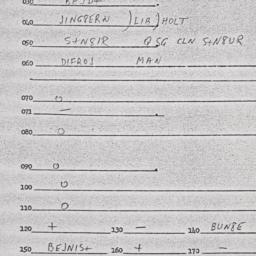 040 JINGPERN )LIB)HOLT
050 S+N8IR QSG CLN S+N8UR
060 DIFROJ MAN
070 O
071 —
080 O
090 O
100 O
110 O
120 + 130 — 140 BUN8E
150 BEJNIS+ 160 + 170 —